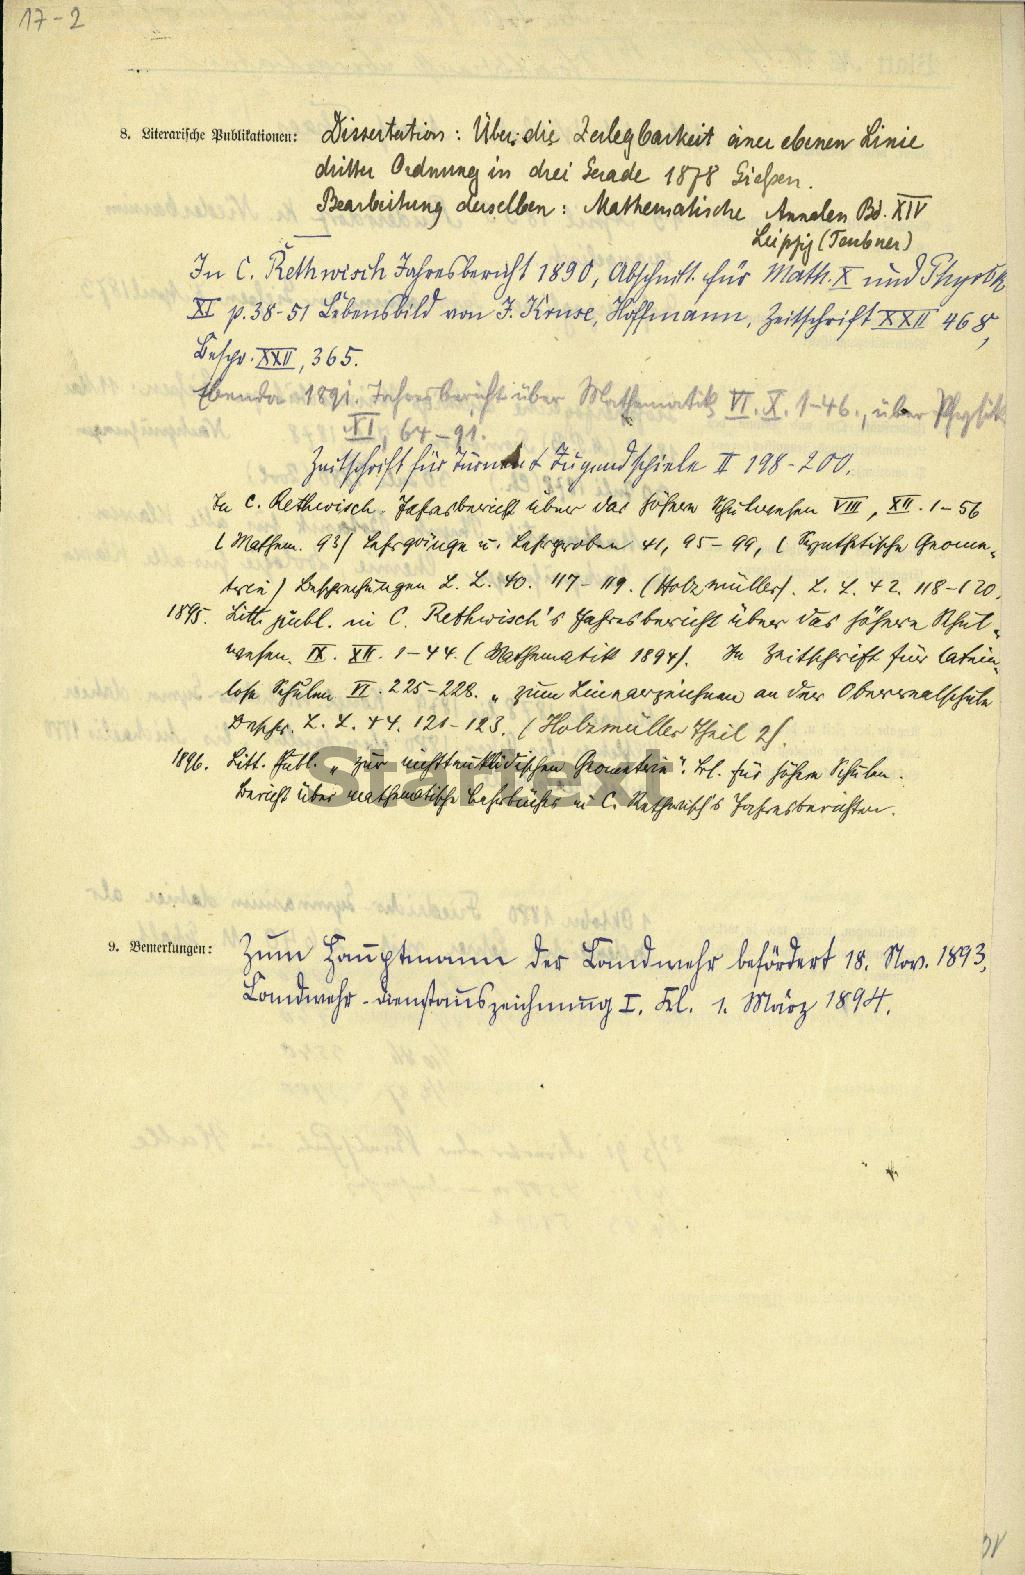 17-2
8. Literarische Publikationen: Dissertation: Über die Zerlegbarkeit einer ebenen Linie
dritter Ordnung in drei Gerade 1878 Gießen.
Bearbeitung derselben: Mathematische Annalen Bd. XIV
Leipzig (Teubner)
In C. Rethwisch Jahresbericht 1890, Abschnitt für Math. X und Physik
XI p. 38-51 Lebensbild von J. Kruse, Hoffmann, Zeitschrift XXII 468,
Bespr. XXII, 365.
Ebenda 1891. Jahresbericht über Mathematik VI. X. 1-46., über Physik
XI, 64-91.
Zeitschrift für Turnen u. Jugendspiele II 198-200.
In C. Rethwisch. Jahresbericht über das höhere Schulwesen VIII, XII. 1-56
(Mathem. 93) Lehrgänge u. Lehrproben 41, 95-99, (Synthetische Geome-
trie) Besprechungen L. L. 40. 117-119. (Holzmüller). L. L. 42. 118-120.
1895. Litt. publ. in C. Rethwisch's Jahresbericht über das höhere Schul-
wesen. IX. XII. 1-44. (Mathematik 1894). In Zeitschrift für latein-
lose Schulen VI. 225-228. „zum Linearzeichnen an der Oberrealschule
Bespr. L. L. 44. 121-123. (Holzmüller Theil 2).
1896. Litt. Publ. „zur nichteuklidischen Geometrie". Bl. für höhere Schulen.
Bericht über mathematische Lehrbücher in C. Rethwisch's Jahresberichten.
Startext
9. Bemerkungen: Zum Hauptmann der Landwehr befördert 18. Nov. 1893,
Landwehr-Dienstauszeichnung I. Kl. 1. März 1894.